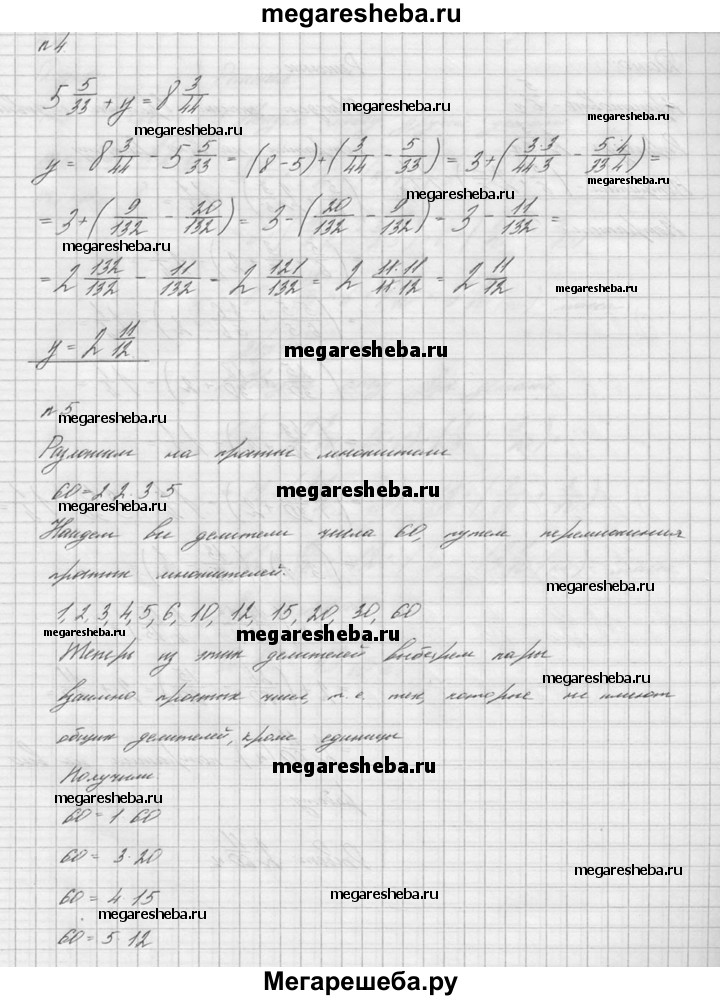 megaresheba.ru
n 4
5 5/33 + y = 8 3/44
megaresheba.ru
megaresheba.ru
megaresheba.ru
y = 8 3/44 - 5 5/33 = (8-5)+(3/44 - 5/33) = 3+(3·3/44·3 - 5·4/33·4) =
megaresheba.ru
= 3+(9/132 - 20/132) = 3-(20/132 - 9/132) = 3 - 11/132 =
megaresheba.ru
= 2 132/132 - 11/132 = 2 121/132 = 2 11·11/11·12 = 2 11/12
megaresheba.ru
y = 2 11/12
megaresheba.ru
n 5
megaresheba.ru
Разложим на простые множители
60=2·2·3·5
megaresheba.ru
megaresheba.ru
Найдем все делители числа 60, путем перемножения
простых множителей.
megaresheba.ru
1, 2, 3, 4, 5, 6, 10, 12, 15, 20, 30, 60
megaresheba.ru
megaresheba.ru
Теперь из этих делителей выберем пары
megaresheba.ru
взаимно простых чисел, т.е. тех, которые не имеют
общих делителей, кроме единицы
megaresheba.ru
Получили
megaresheba.ru
60 = 1·60
60 = 3·20
60 = 4·15
megaresheba.ru
megaresheba.ru
60 = 5·12
Мегарешеба.ру